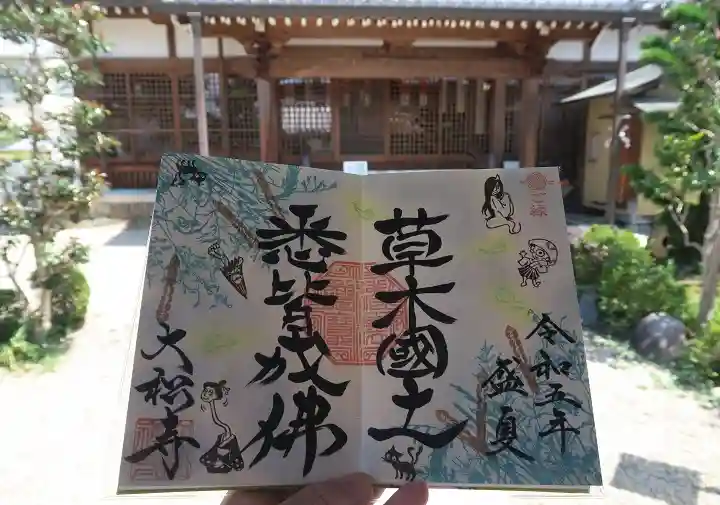 令和五年
盛夏
草木國土
悉皆成佛
大松寺